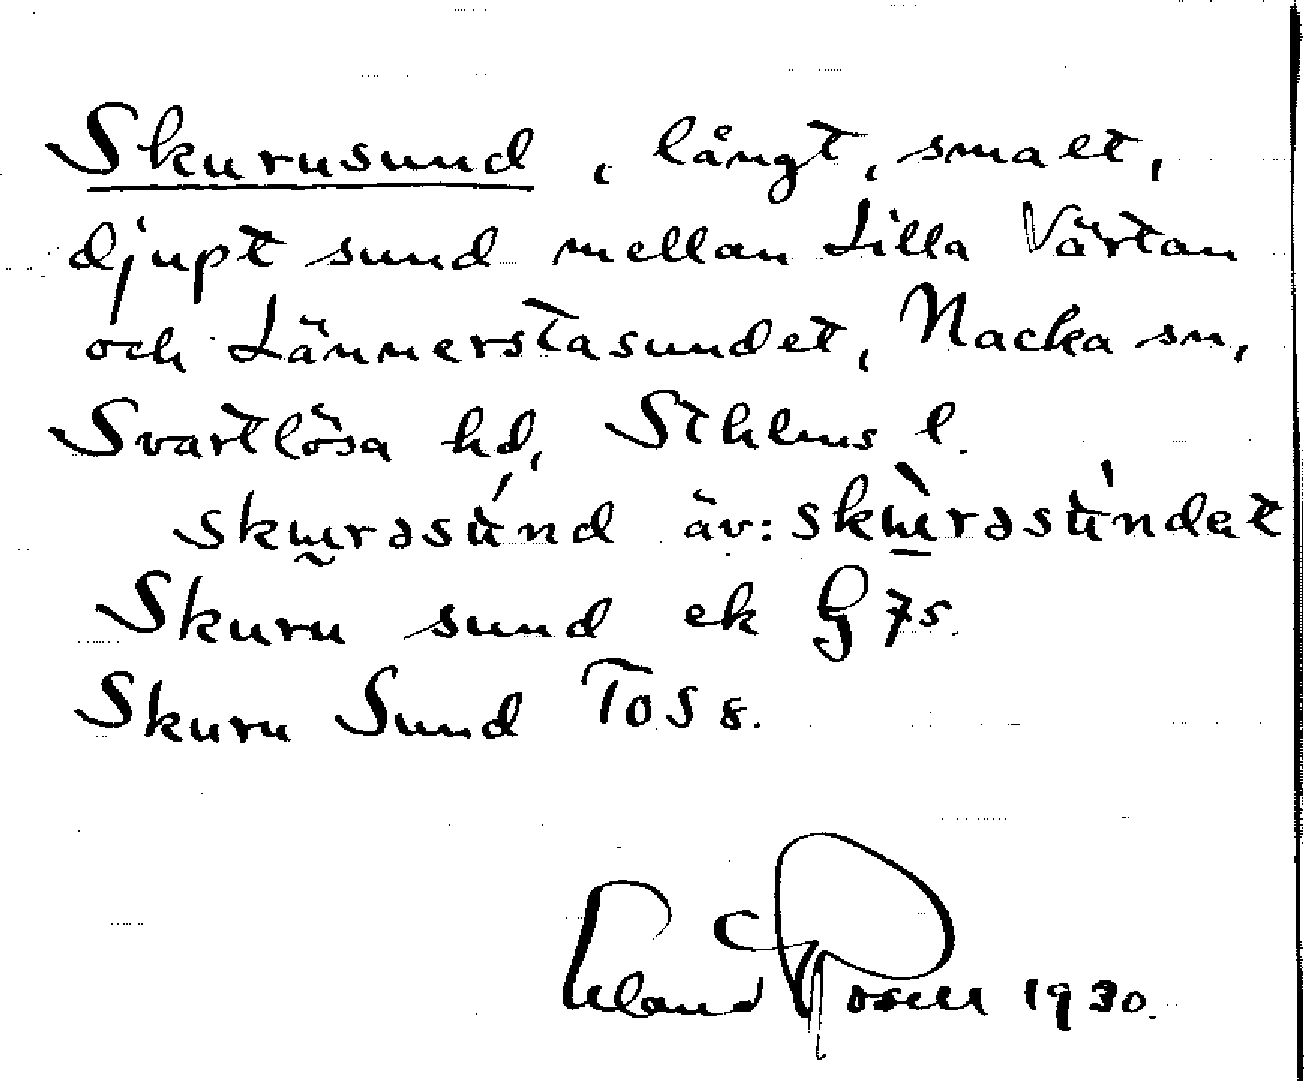 Skurusund, långt, smalt,
djupt sund mellan Lilla Värtan
och Lännerstasundet, Nacka sn,
Svartlösa hd, Sthlms l.
äv:
Skuru sund ek G 75.
Skuru Sund TOS 8.
Erland Rosell 1930.